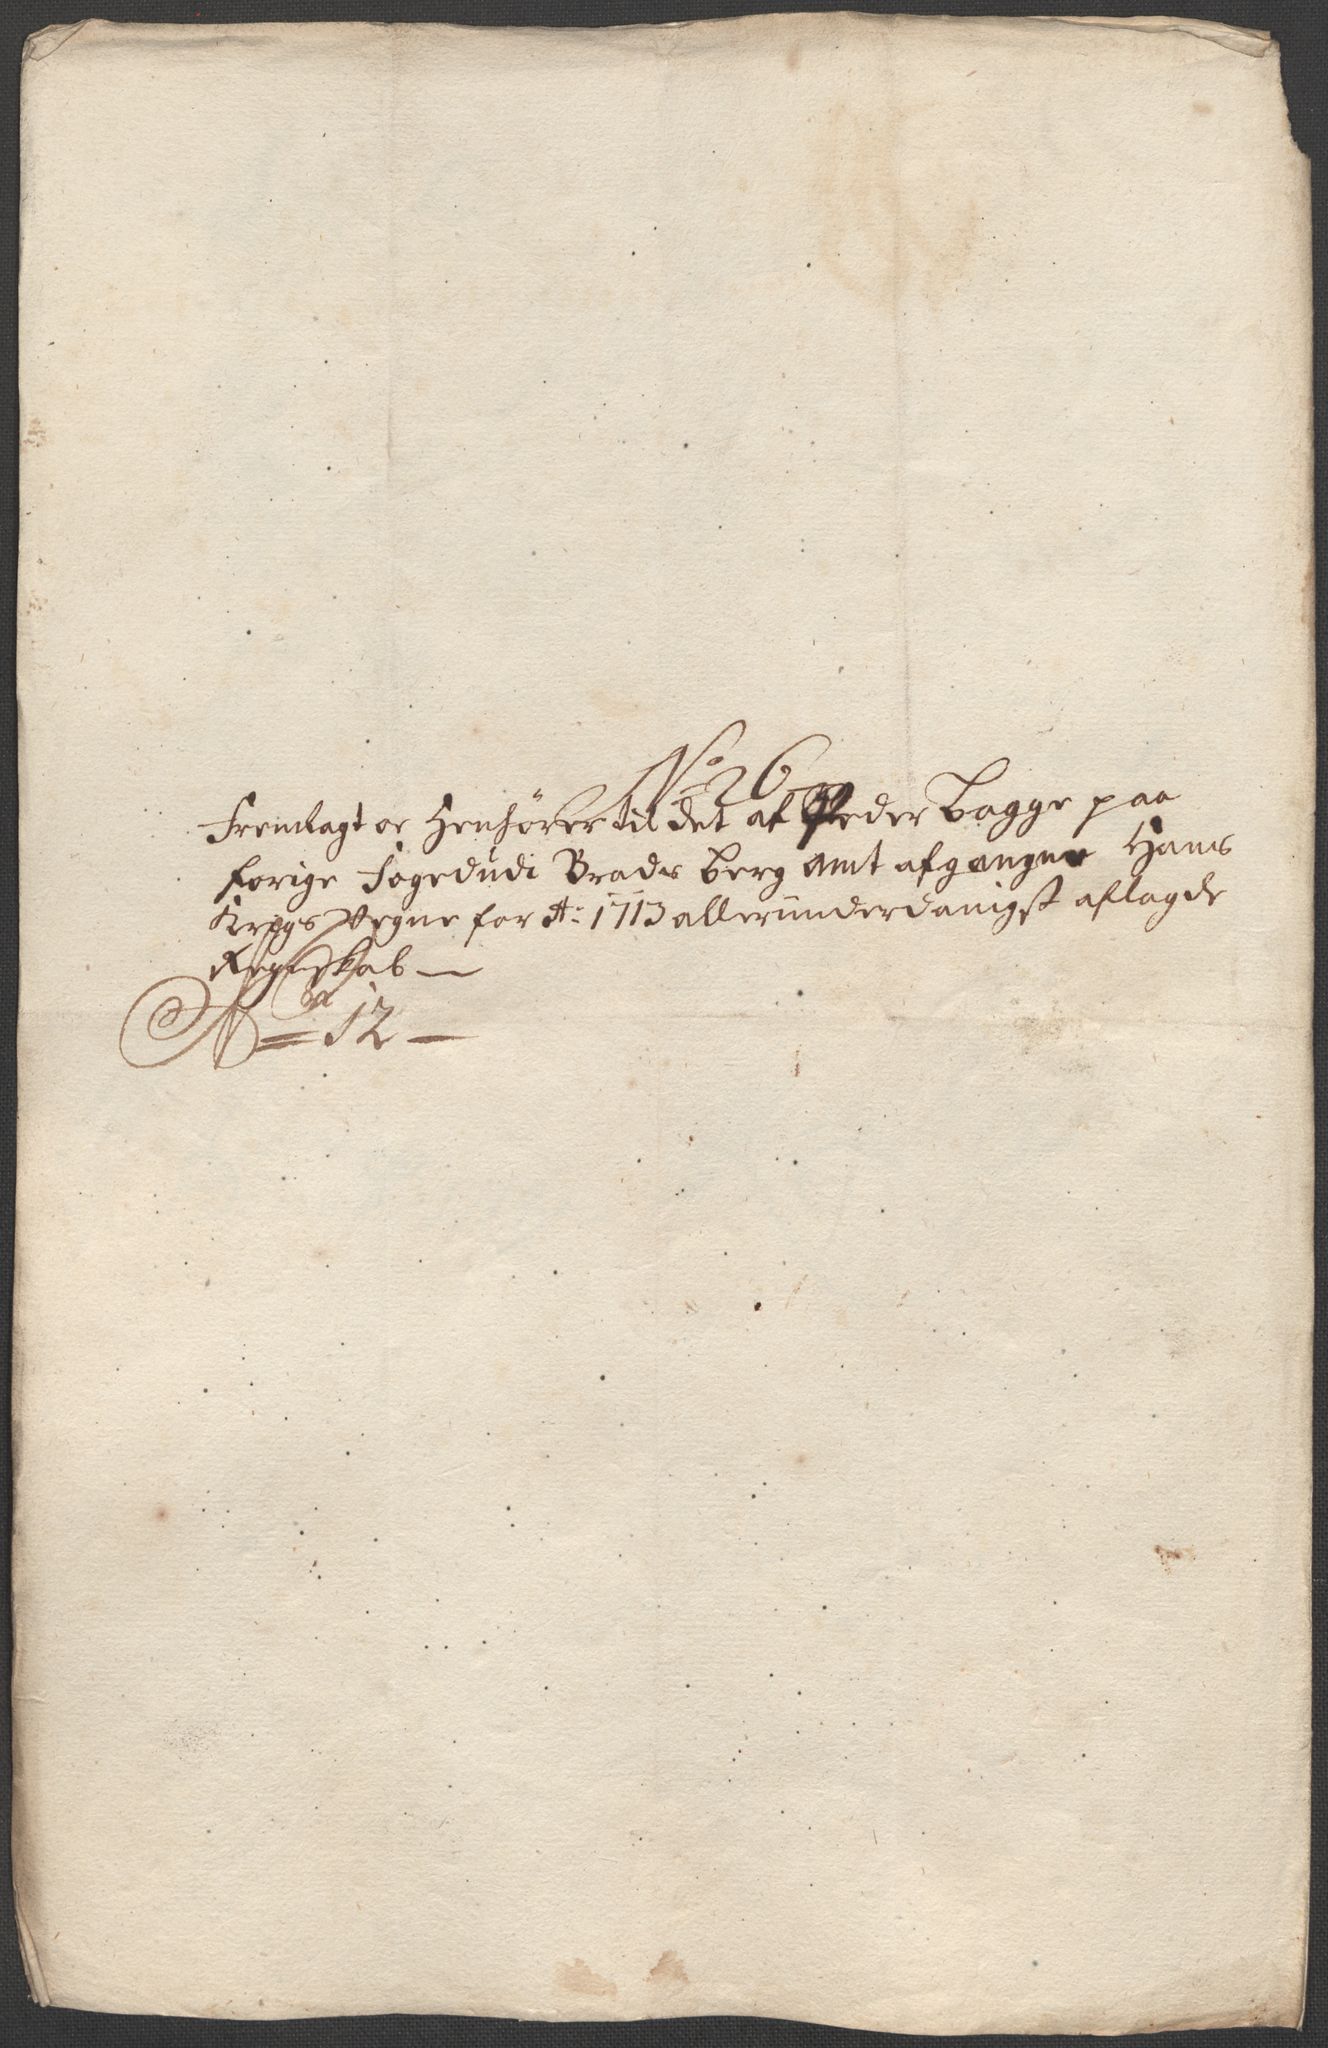 No: 26
Fremlagt oc Henhörer til det af Peder Bagge paa
forige Fogedud i Brads berg Amt afgangne Hans
Krygs Vegne for Ao: 1713 allerunderdanigst aflagde
Regnskab —
12 —